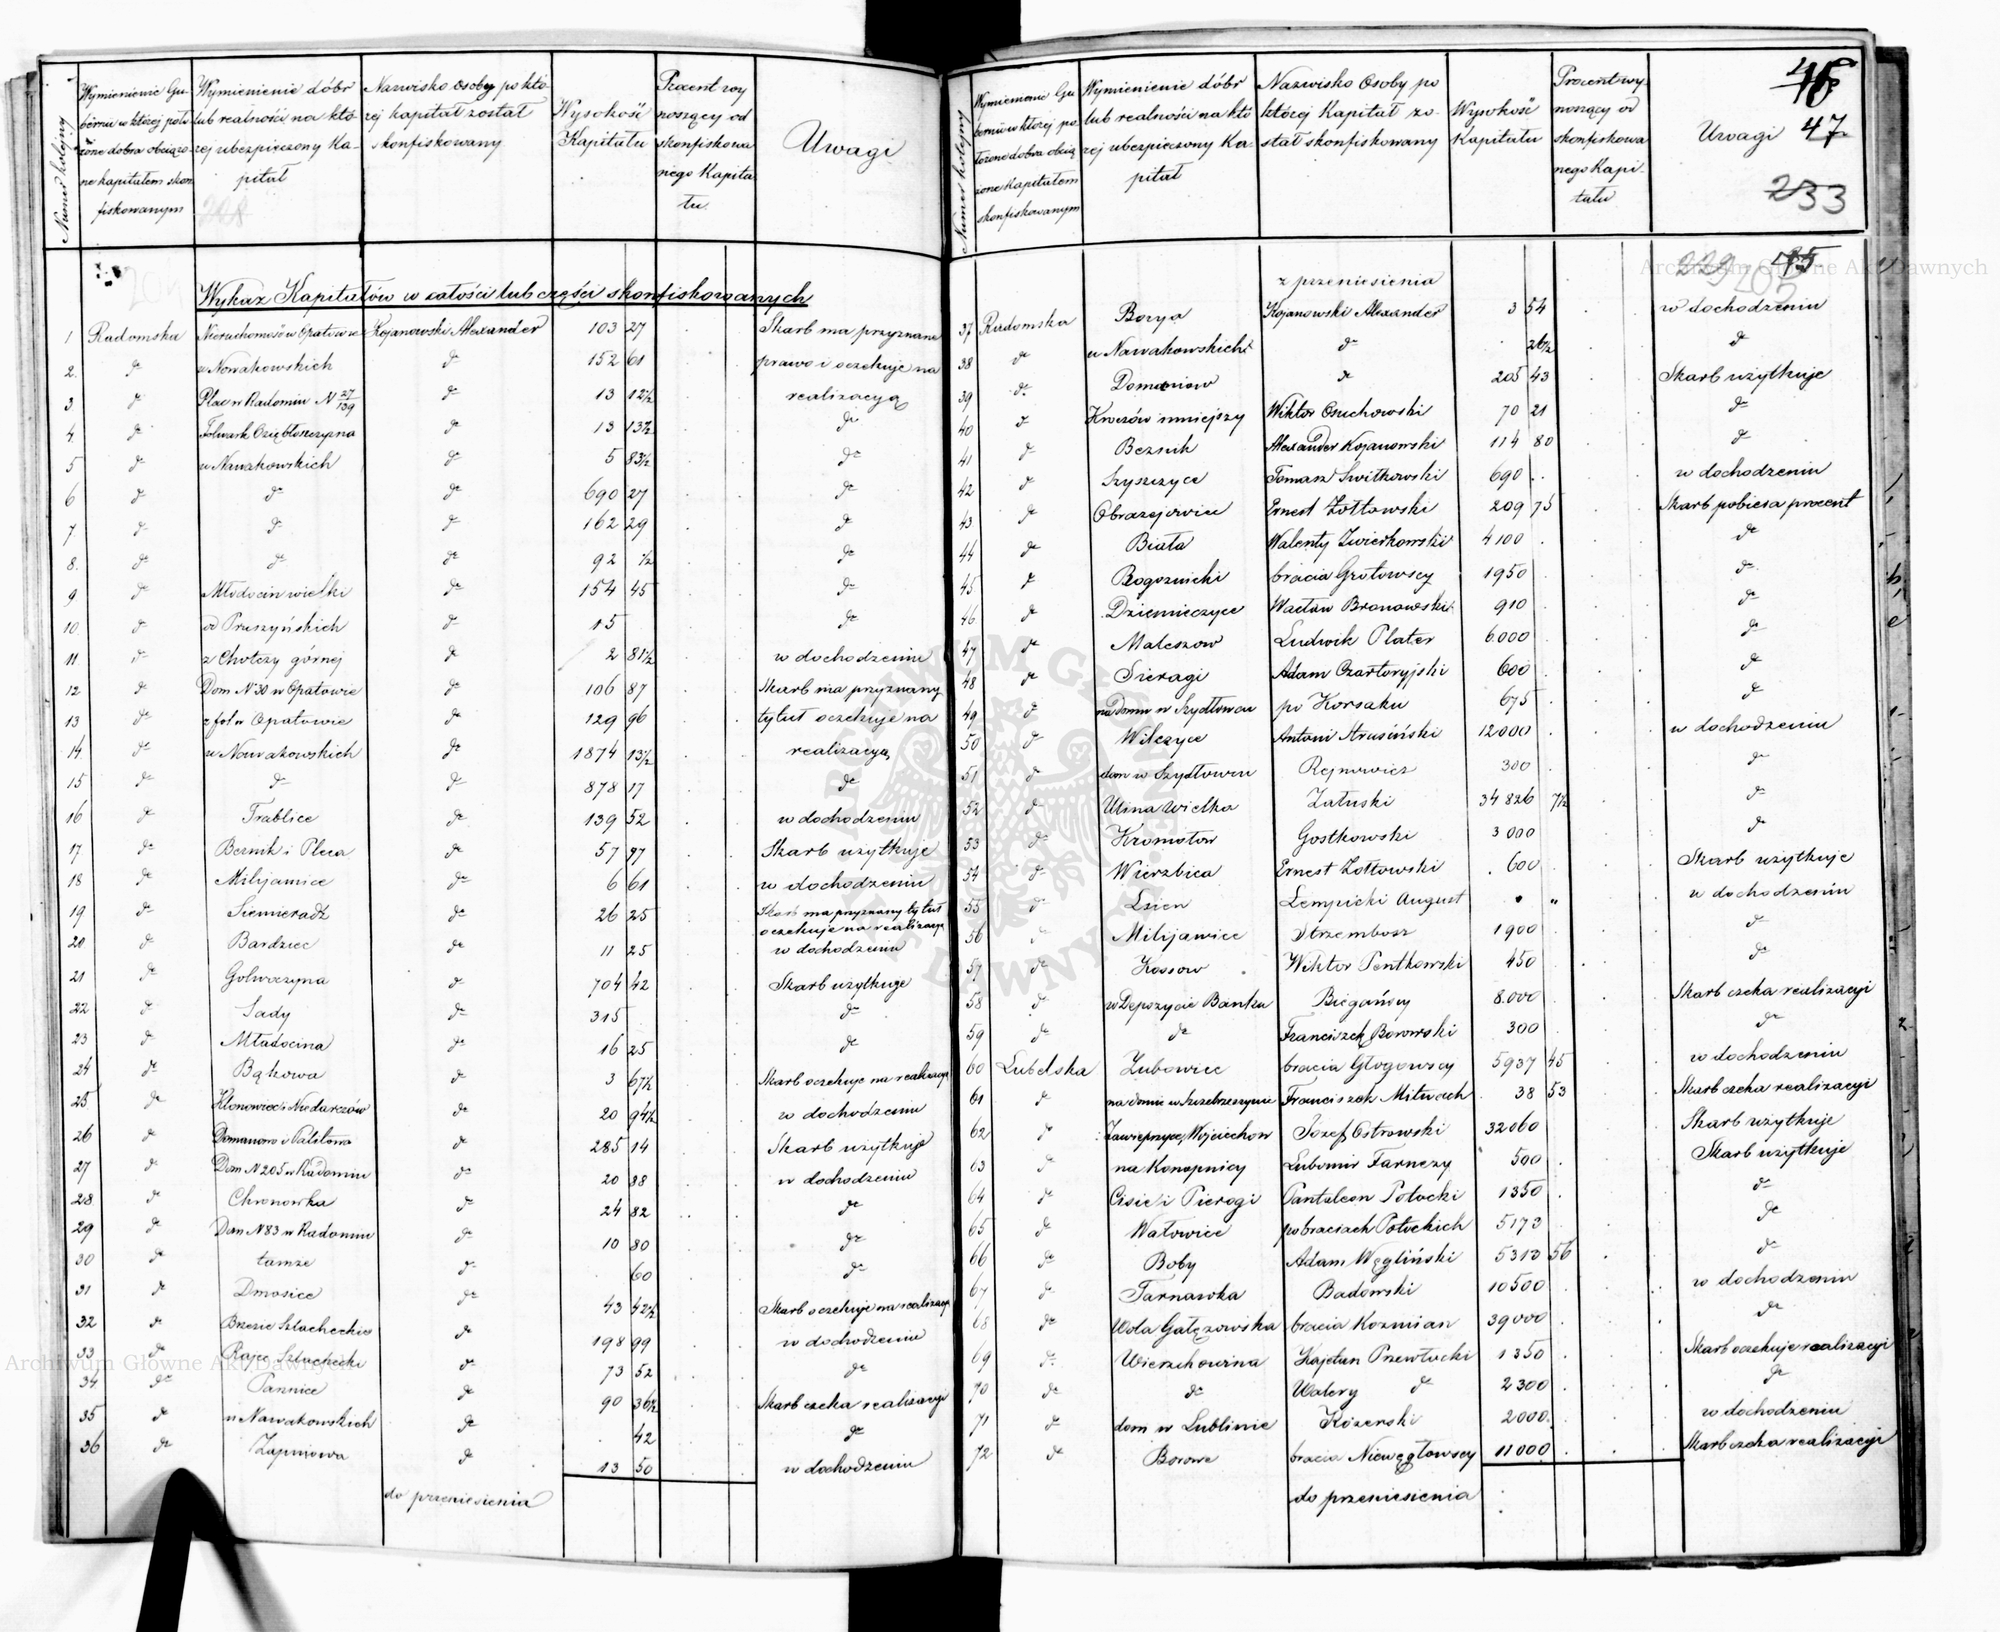 Numer kolejny
Wymienienie Gu-
berni w której poło
żone dobra obciążo-
ne kapitałem skon
fiskowanym
Wymienienie dóbr
lub realności na któ
rej ubezpieczony Ka-
pitał
Nazwisko osoby po któ
rej kapitał został
skonfiskowany
Wysokość
Kapitału
Procent wy
noszący od
skonfiskowa
nego Kapita
łu
Uwagi
Wykaz Kapitałów w całości lub części skonfiskowanych
1 Radomska Nieruchomość w Opatowie Kojanowski Alexander 103 27 Skarb ma przyznane
2 d° u Nowakowskich d° 152 61 prawo i oczekuje na
3 d° Plac w Radomiu N 27/139 d° 13 12½ realizacyą
4 d° Folwark d° 13 13½ d°
5 d° u Nowakowskich d° 5 83½ d°
6 d° d° d° 690 27 d°
7 d° d° d° 162 29 d°
8 d° d° d° 92 ½ d°
9 d° Młodocin wielki d° 154 45 d°
10 d° od Pruszyńskich d° 15 d°
11 d° z Chotczy górnej d° 2 81½ w dochodzeniu
12 d° Dom N 30 w Opatowie d° 106 87 Skarb ma przyznany
13 d° z fol w Opatowie d° 129 96 tytuł oczekuje na
14 d° u Nowakowskich d° 1874 13½ realizacyą
15 d° d° d° 878 17 d°
16 d° Trablice d° 139 52 w dochodzeniu
17 d° Beznik i Pleca d° 57 97 Skarb użytkuje
18 d° Milijamice d° 6 61 w dochodzeniu
19 d° Siemieradz d° 26 25 Skarb ma przyznany tytuł
oczekuje na realizacyą
20 d° Bardziec d° 11 25 w dochodzeniu
21 d° Gołwaczyna d° 704 42 Skarb użytkuje
22 d° Sady d° 315 d°
23 d° Młodocina d° 16 25 d°
24 d° Bąkowa d° 3 67½ Skarb oczekuje na realizacyą
25 d° Klonowiec i Niedarczów d° 20 94½ w dochodzeniu
26 d° Domanowo i d° 285 14 Skarb użytkuje
27 d° Dom N 205 w Radomiu d° 20 88 w dochodzeniu
28 d° Chronówka d° 24 82 d°
29 d° Dom N 83 w Radomiu d° 10 80 d°
30 d° tamże d° 60 d°
31 d° Dmosice d° 43 42½ Skarb oczekuje na realizacyą
32 d° Brzezie Szlacheckie d° 198 99 w dochodzeniu
33 d° Rajec Szlachecki d° 73 52 d°
34 d° Pannice d° 90 36½ Skarb czeka realizacyi
35 d° u Nowakowskich d° 42 d°
36 d° Zapniowa d° 13 50 w dochodzeniu
do przeniesienia
Numer kolejny
Wymienienie Gu
berni w której po
łożone dobra obcią
żone Kapitałem
skonfiskowanym
Wymienienie dóbr
lub realności na któ
rej ubezpieczony Ka-
pitał
Nazwisko Osoby po
której Kapitał zo-
stał skonfiskowany
Wysokość
Kapitału
Procent wy
noszący od
skonfiskowa
nego Kapi-
tału
Uwagi
46
47
233
229
z przeniesienia
37 Radomska Borya Kojanowski Alexander 3 54 w dochodzeniu
38 d° u Nowakowskich d° 26½ d°
39 d° Domaniow d° 205 43 Skarb użytkuje
40 d° mniejszy Wiktor Osuchowski 70 21 d°
41 d° Beznik Alexander Kojanowski 114 80 d°
42 d° Szyszczyce Tomasz Switkowski 690 w dochodzeniu
43 d° Obrazejowice Ernest Żołtowski 209 75 Skarb pobiera procent
44 d° Biała Walenty Zwierkowski 4100 d°
45 d° Rogoznicki bracia Grotowscy 1950 d°
46 d° Dziemieczyce Wacław Bronowski 910 d°
47 d° Maleszow Ludwik Plater 6.000 d°
48 d° Sieragi Adam Czartoryjski 600 d°
49 d° na Domu w Szydłowcu po Korsaku 675 d°
50 d° Wilczyce Antoni Strusiński 12000 w dochodzeniu
51 d° dom w Szydłowcu Rejnowicz 300 d°
52 d° Ulina Wielka Załuski 34 826 7½ d°
53 d° Kromołow Gostkowski 3 000 d°
54 d° Wierzbica Ernest Żołtowski 600 Skarb użytkuje
55 d° Lsien Lempicki August w dochodzeniu
56 d° Milijawice Strzembosz 1900 d°
57 d° Kossow Wiktor Pentkowski 450 d°
58 d° w Depozycie Banku Biegańscy 8.000 Skarb czeka realizacyi
59 d° d° Franciszek Borowski 300 d°
60 Lubelska Zubowiec bracia Głogowscy 5937 45 w dochodzeniu
61 d° na domie w Szczebrzeszynie Franciszek Mitwach 38 53 Skarb czeka realizacyi
62 d° Zawieprzyce, Wojciechow Jozef Ostrowski 32060 Skarb użytkuje
63 d° na Konopnicy Lubomir Farnezy 500 Skarb użytkuje
64 d° Cisie i Pierogi Pantaleon Potocki 1350 d°
65 d° Wałowice po braciach Potockich 5173 d°
66 d° Boby Adam Węgliński 5313 56 d°
67 d° Tarnawka Badowski 10500 w dochodzeniu
68 d° Wola Gałęzowska bracia Kozmian 39000 d°
69 d° Wierzchowina Kajetan Przewłocki 1350 Skarb oczekuje realizacyi
70 d° d° Walery d° 2300 d°
71 d° dom w Lublinie Kozerski 2000 w dochodzeniu
72 d° Borowe bracia Niewęgłowscy 11000 Skarb czeka realizacyi
do przeniesienia
Archiwum Główne Akt Dawnych
Archiwum Główne Akt Dawnych
ARCHIWUM GŁÓWNE AKT DAWNYCH